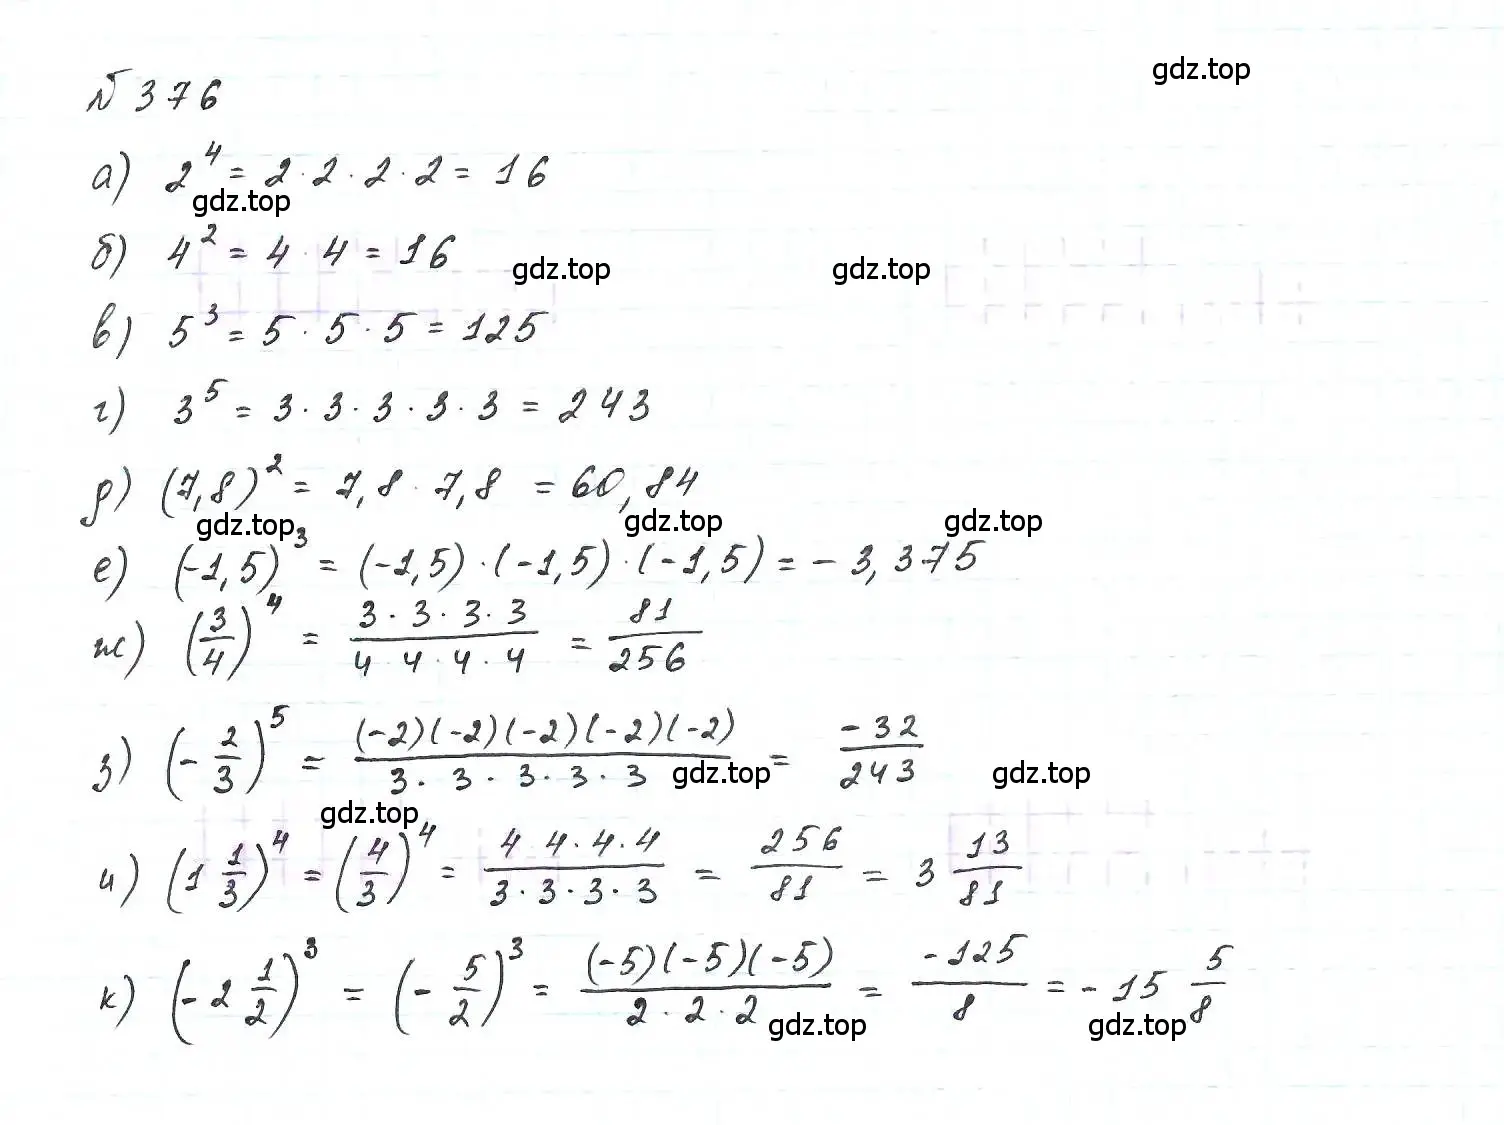 gdz.top
№ 376
а) 2⁴ = 2 · 2 · 2 · 2 = 16
gdz.top
б) 4² = 4 · 4 = 16
gdz.top gdz.top
в) 5³ = 5 · 5 · 5 = 125
г) 3⁵ = 3 · 3 · 3 · 3 · 3 = 243
д) (7,8)² = 7,8 · 7,8 = 60,84
gdz.top gdz.top gdz.top
е) (-1,5)³ = (-1,5) · (-1,5) · (-1,5) = - 3,375
ж) (3/4)⁴ = (3 · 3 · 3 · 3)/(4 · 4 · 4 · 4) = 81/256
з) (- 2/3)⁵ = ((-2)(-2)(-2)(-2)(-2))/(3 · 3 · 3 · 3 · 3) = -32/243
gdz.top gdz.top
gdz.top
и) (1 1/3)⁴ = (4/3)⁴ = (4 · 4 · 4 · 4)/(3 · 3 · 3 · 3) = 256/81 = 3 13/81
к) (- 2 1/2)³ = (- 5/2)³ = ((-5)(-5)(-5))/(2 · 2 · 2) = -125/8 = - 15 5/8
gdz.top gdz.top